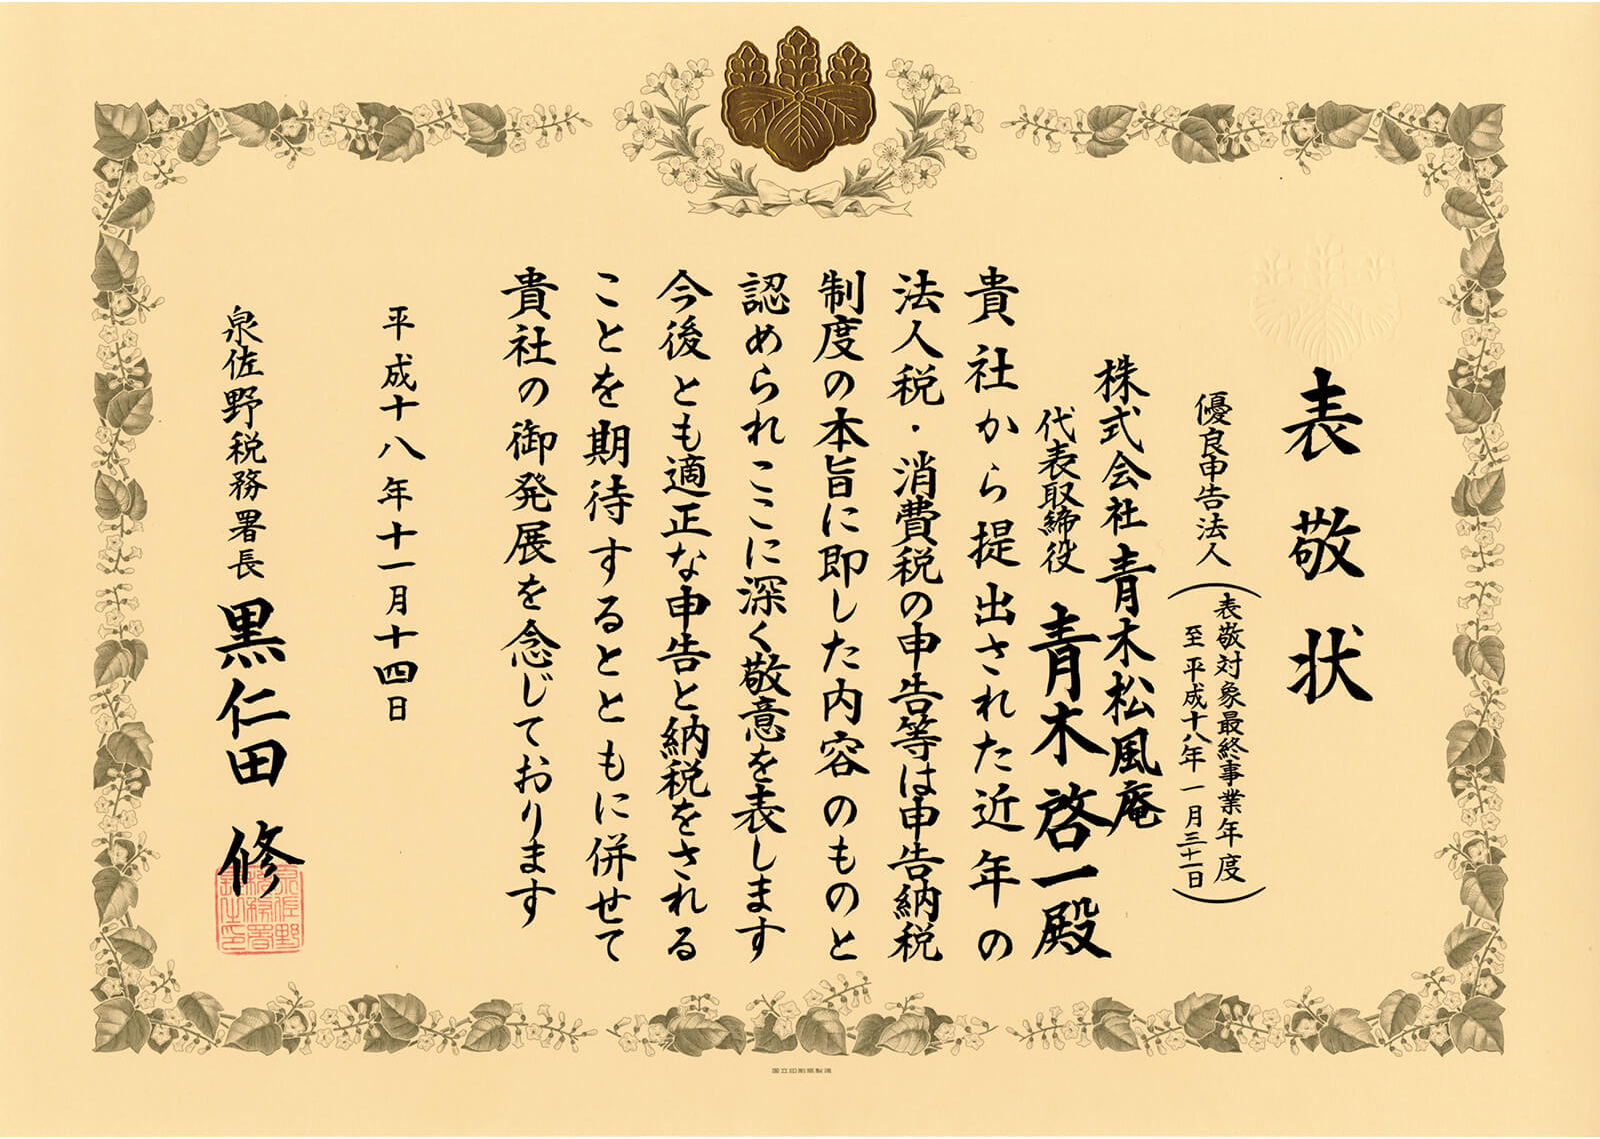 表敬状
優良申告法人
（表敬対象最終事業年度
至平成十八年一月三十一日）
株式会社青木松風庵
代表取締役 青木啓一殿
貴社から提出された近年の
法人税・消費税の申告等は申告納税
制度の本旨に即した内容のものと
認められここに深く敬意を表します
今後とも適正な申告と納税をされる
ことを期待するとともに併せて
貴社の御発展を念じております
平成十八年十一月十四日
泉佐野税務署長 黒仁田 修
国立印刷局製造